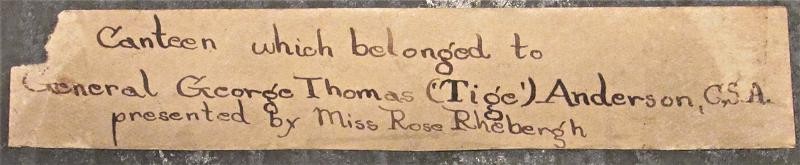 Canteen which belonged to
General George Thomas ('Tige') Anderson, C.S.A.
presented by Miss Rose Rhebergh